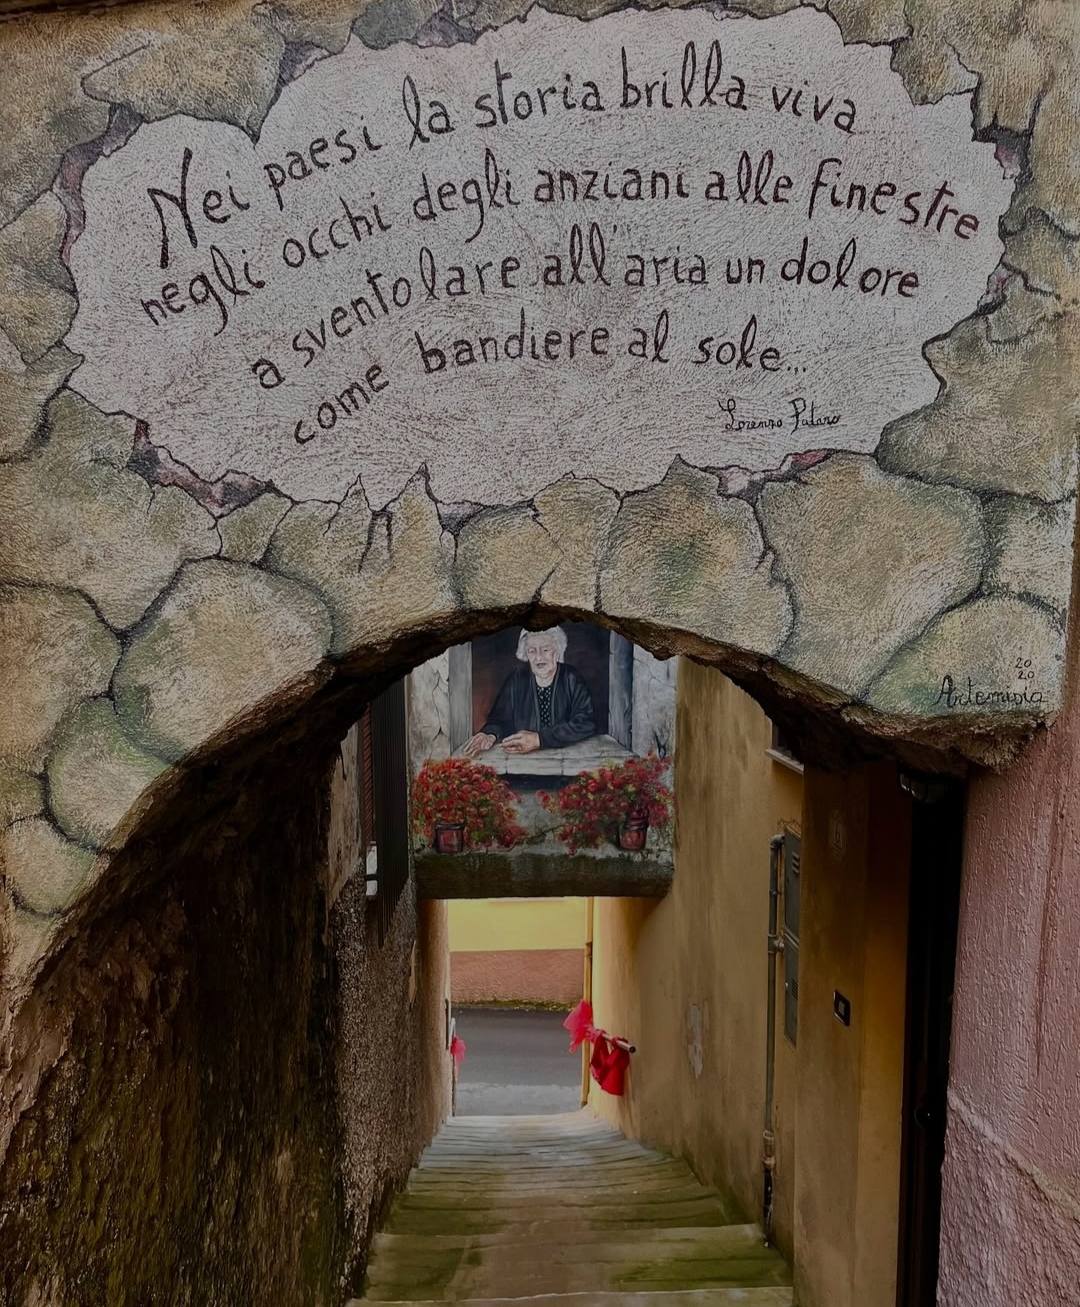 Nei paesi la storia brilla viva
negli occhi degli anziani alle finestre
a sventolare all'aria un dolore
come bandiere al sole...
Lorenzo Pataro
20
20
Artemisia